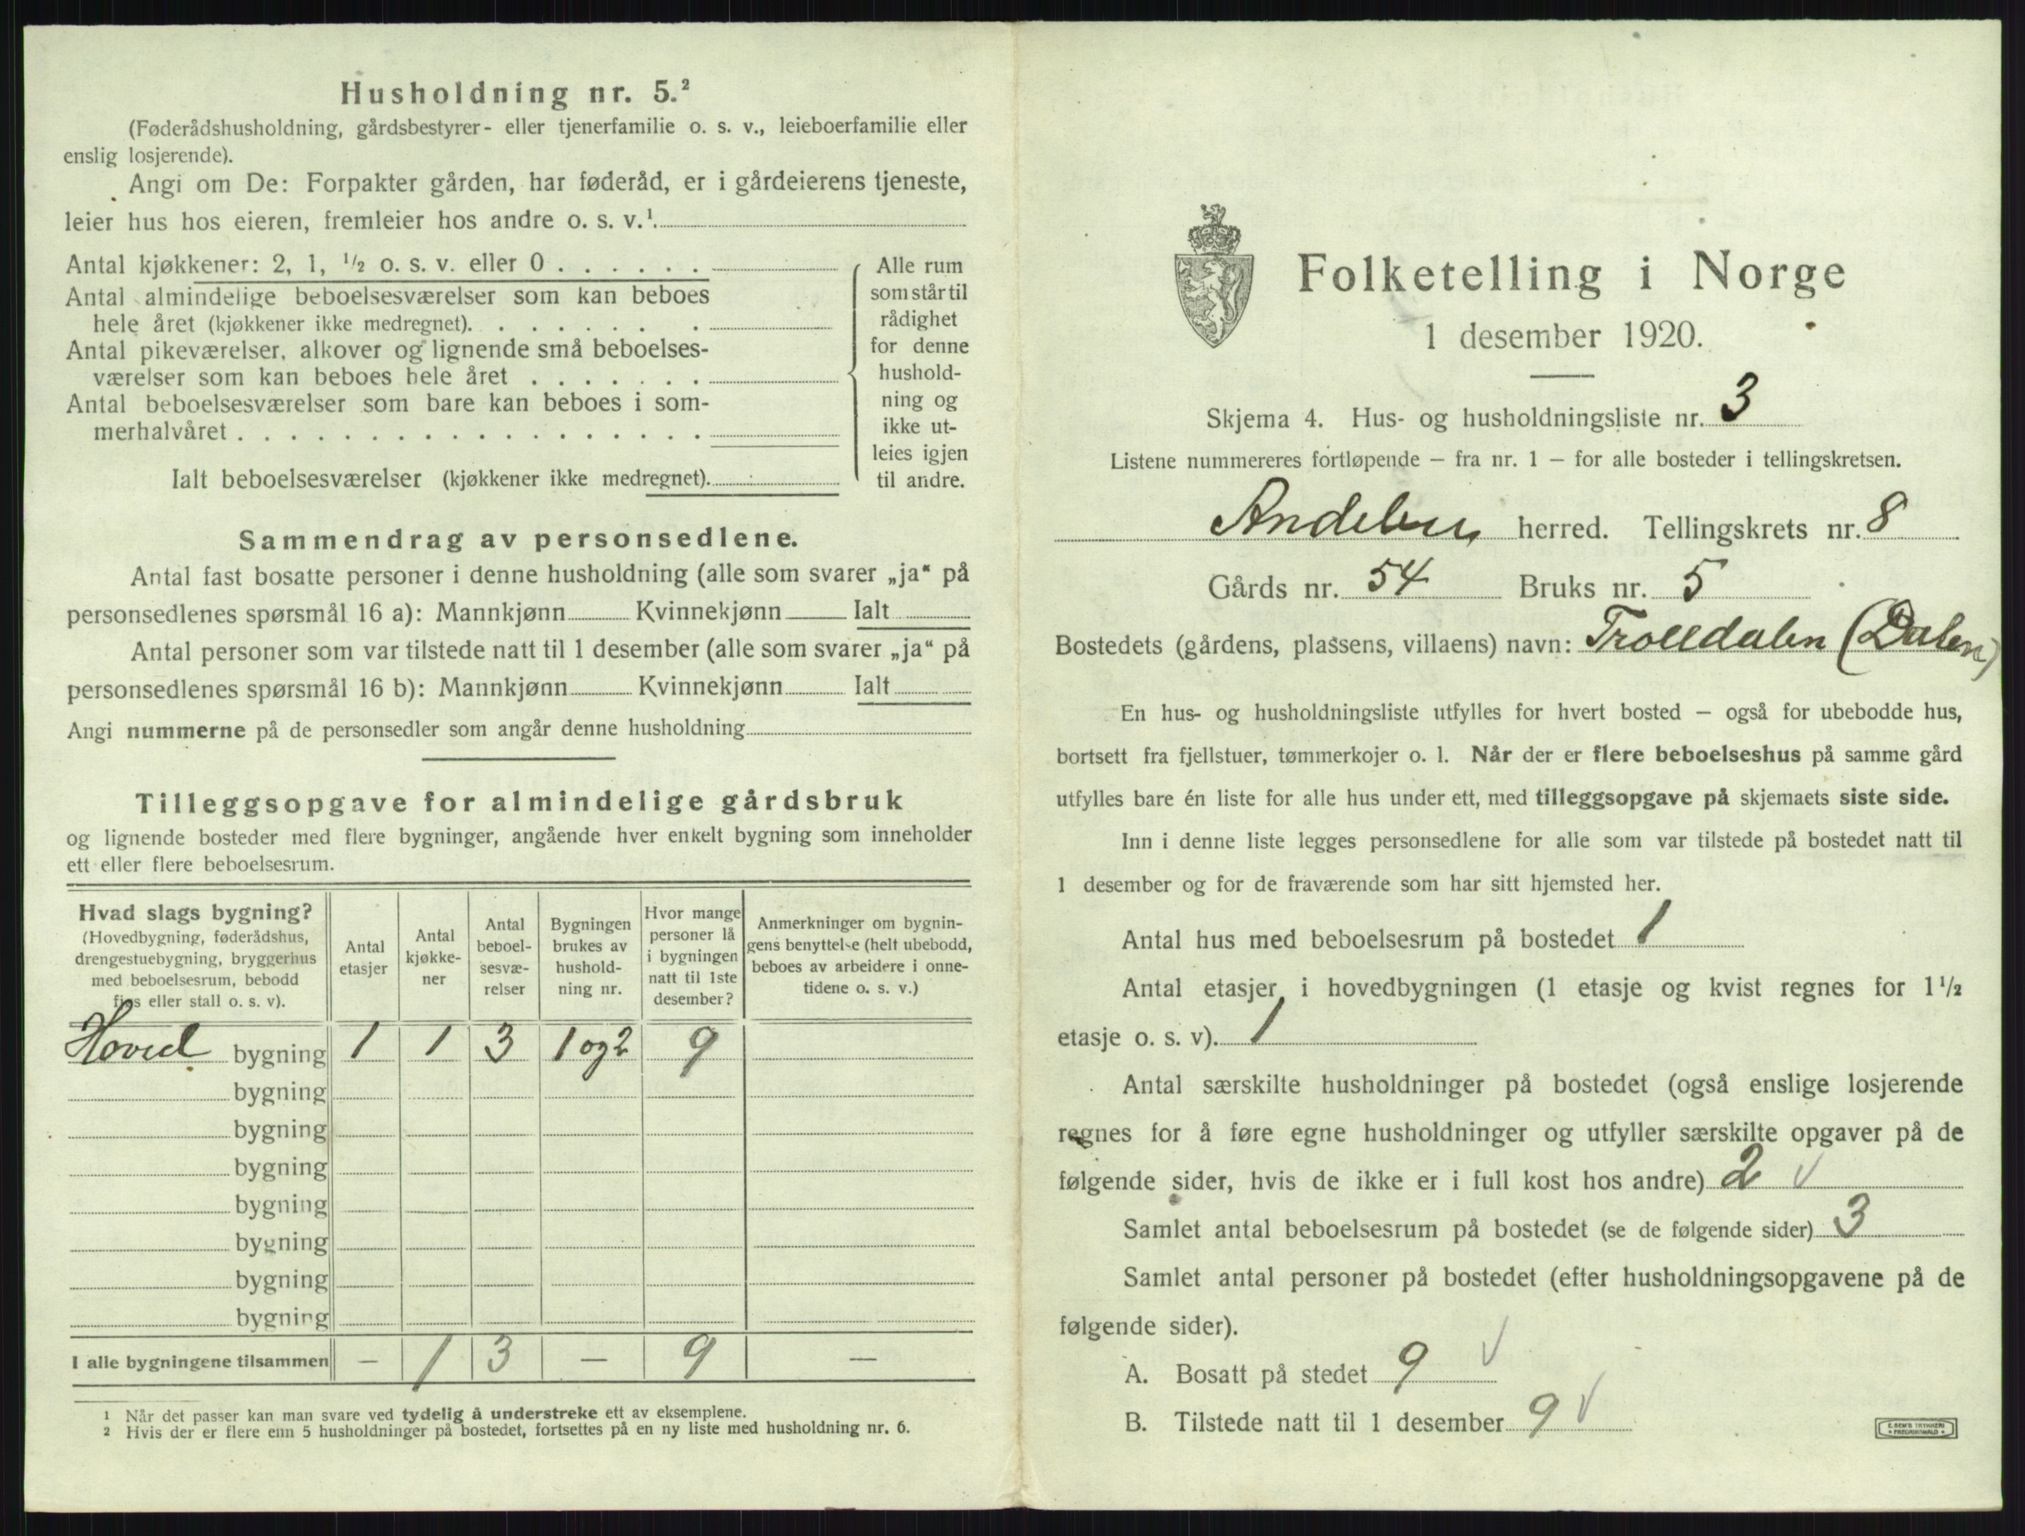 Husholdning nr. 5.²
(Føderådshusholdning, gårdsbestyrer- eller tjenerfamilie o. s. v., leieboerfamilie eller
enslig losjerende).
Angi om De: Forpakter gården, har føderåd, er i gårdeierens tjeneste,
leier hus hos eieren, fremleier hos andre o. s. v.¹
Antal kjøkkener: 2, 1, ½ o. s. v. eller 0 . . . . . .
Antal almindelige beboelsesværelser som kan beboes
hele året (kjøkkener ikke medregnet). . . . . . . .
Antal pikeværelser, alkover og lignende små beboelses-
værelser som kan beboes hele året . . . . . . .
Antal beboelsesværelser som bare kan beboes i som-
merhalvåret . . . . . . . . . . . . . . . . .
Ialt beboelsesværelser (kjøkkener ikke medregnet).
Alle rum
som står til
rådighet
for denne
hushold-
ning og
ikke ut-
leies igjen
til andre.
Sammendrag av personsedlene.
Antal fast bosatte personer i denne husholdning (alle som svarer „ja“ på
personsedlenes spørsmål 16 a): Mannkjønn Kvinnekjønn Ialt
Antal personer som var tilstede natt til 1 desember (alle som svarer „ja“ på
personsedlenes spørsmål 16 b): Mannkjønn Kvinnekjønn Ialt
Angi nummerne på de personsedler som angår denne husholdning
Tilleggsopgave for almindelige gårdsbruk
og lignende bosteder med flere bygninger, angående hver enkelt bygning som inneholder
ett eller flere beboelsesrum.
Hvad slags bygning?
(Hovedbygning, føderådshus,
drengestuebygning, bryggerhus
med beboelsesrum, bebodd
fjøs eller stall o. s. v).
Antal
etasjer
Antal
kjøkke-
ner
Antal
beboel-
sesvæ-
relser
Bygningen
brukes av
hushold-
ning nr.
Hvor mange
personer lå
i bygningen
natt til 1ste
desember?
Anmerkninger om bygnin-
gens benyttelse (helt ubebodd,
beboes av arbeidere i onne-
tidene o. s. v.)
Hoved bygning 1 1 3 1 og 2 9
bygning
bygning
bygning
bygning
bygning
bygning
bygning
I alle bygningene tilsammen — 1 3 — 9 —
¹ Når det passer kan man svare ved tydelig å understreke ett av eksemplene.
² Hvis der er flere enn 5 husholdninger på bostedet, fortsettes på en ny liste med husholdning nr. 6.
Folketelling i Norge
1 desember 1920.
Skjema 4. Hus- og husholdningsliste nr. 3
Listene nummereres fortløpende – fra nr. 1 – for alle bosteder i tellingskretsen.
Andebu herred. Tellingskrets nr. 8
Gårds nr. 54 Bruks nr. 5
Bostedets (gårdens, plassens, villaens) navn: Trolldalen (Dalen)
En hus- og husholdningsliste utfylles for hvert bosted – også for ubebodde hus,
bortsett fra fjellstuer, tømmerkojer o. l. Når der er flere beboelseshus på samme gård
utfylles bare én liste for alle hus under ett, med tilleggsopgave på skjemaets siste side.
Inn i denne liste legges personsedlene for alle som var tilstede på bostedet natt til
1 desember og for de fraværende som har sitt hjemsted her.
Antal hus med beboelsesrum på bostedet 1
Antal etasjer i hovedbygningen (1 etasje og kvist regnes for 1½
etasje o. s. v). 1
Antal særskilte husholdninger på bostedet (også enslige losjerende
regnes for å føre egne husholdninger og utfyller særskilte opgaver på de
følgende sider, hvis de ikke er i full kost hos andre) 2 ✓
Samlet antal beboelsesrum på bostedet (se de følgende sider) 3
Samlet antal personer på bostedet (efter husholdningsopgavene på de
følgende sider).
A. Bosatt på stedet 9 ✓
B. Tilstede natt til 1 desember 9 ✓